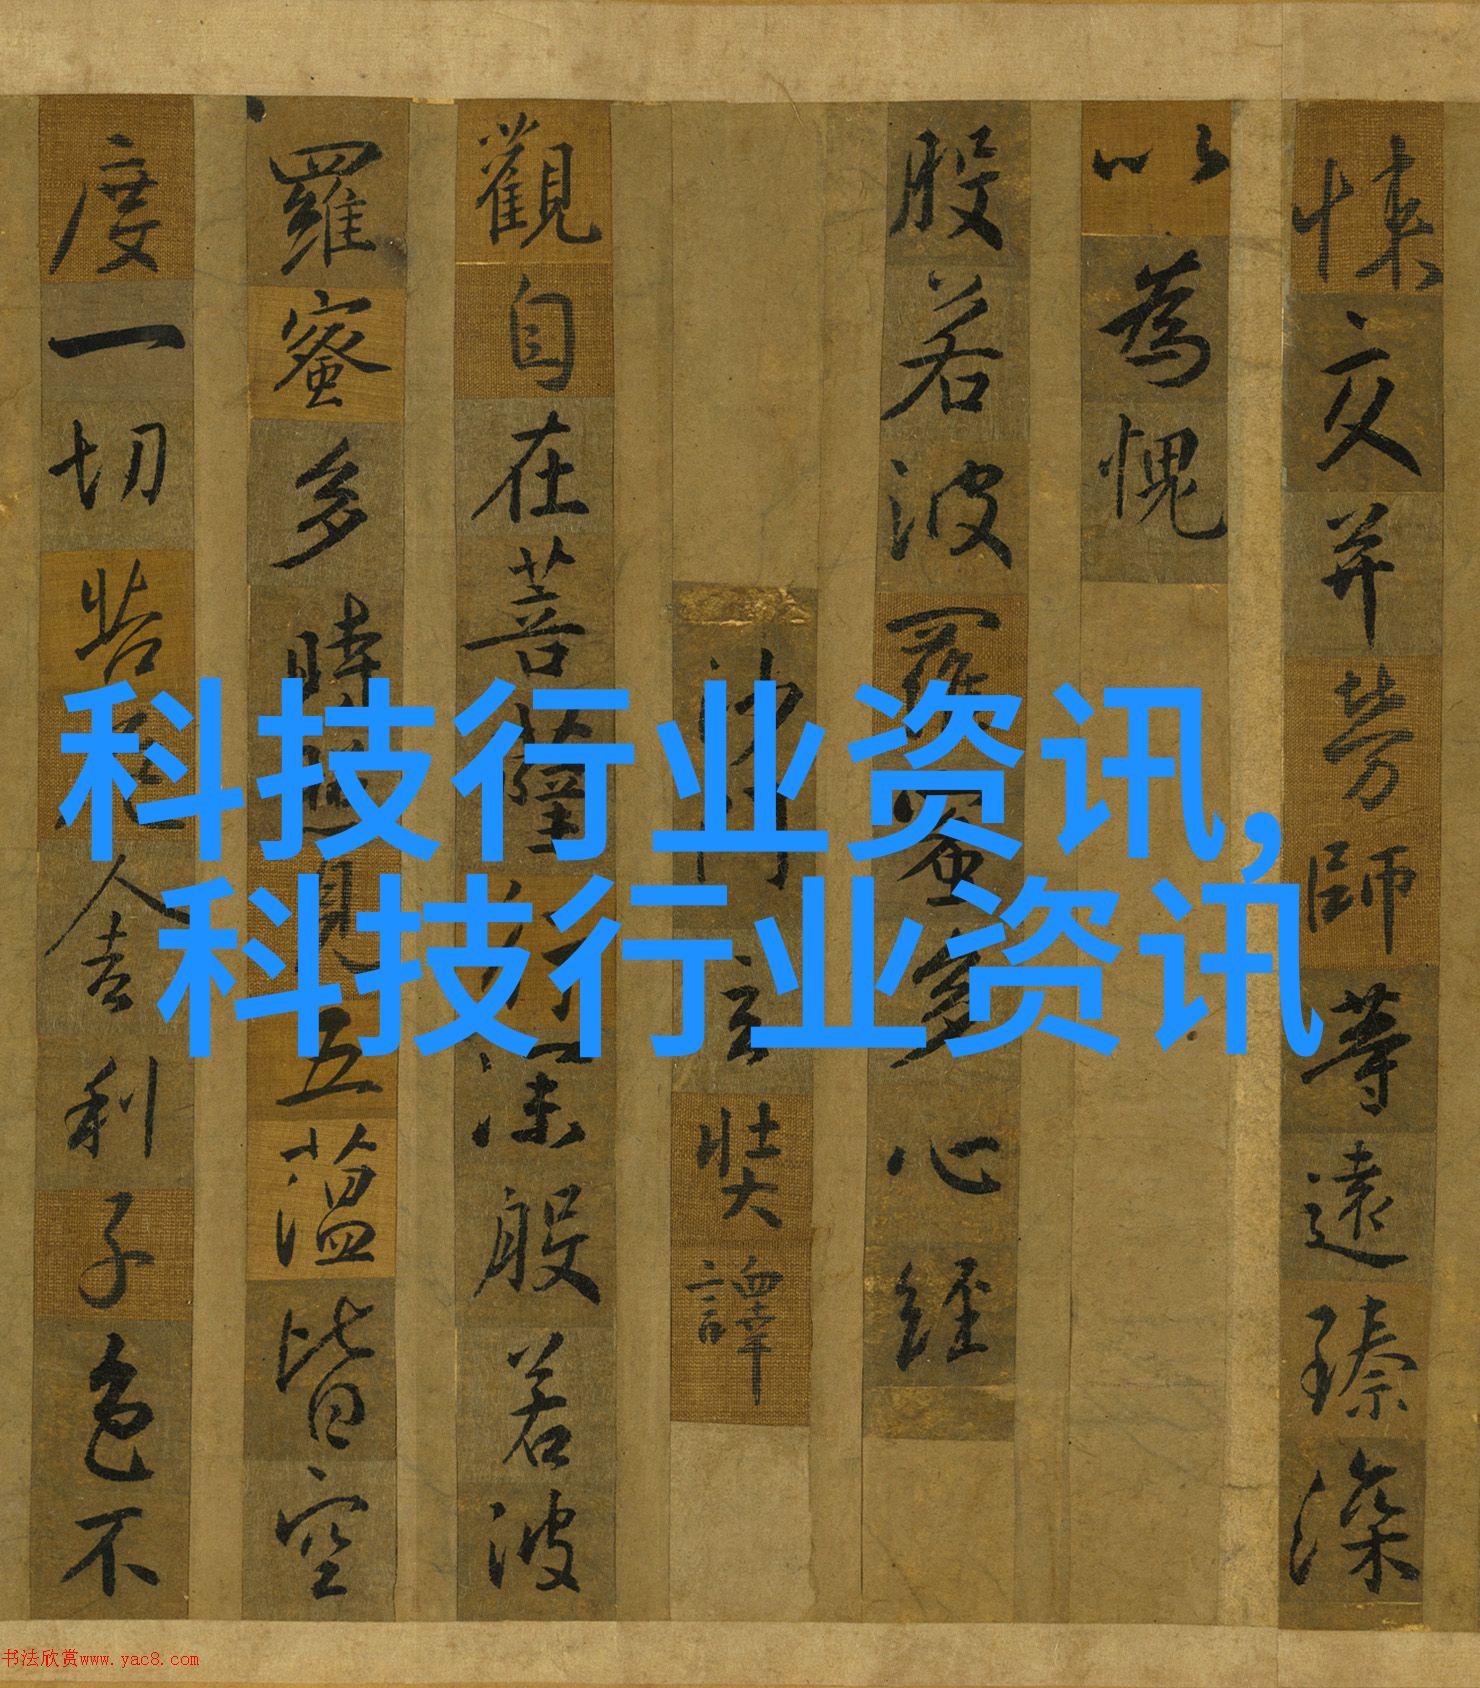 科技行业资讯,
科技行业资讯
悚交并勞師等遠臻深
以為愧
般若波羅蜜多心經
沙門玄奘譯
觀自在菩薩行深般若波
羅蜜多時照見五蘊皆空
度一切苦厄舍利子色不
书法欣赏www.yac8.com